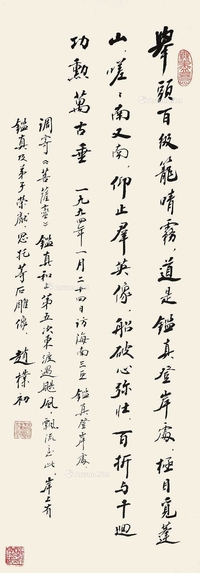 举头百级笼晴雾,道是鉴真登岸处,极目觅蓬
山,嗟嗟南又南,仰止群英像,船破心弥壮,百折与千迴
功勋万古垂 一九九四年一月二十四日访海南三亚 鉴真登岸处,
调寄《菩萨蛮》 鉴真和上第五次东渡遇飓风,飘流至此,岸上有
鉴真及弟子荣叡、思托等石雕像 赵朴初